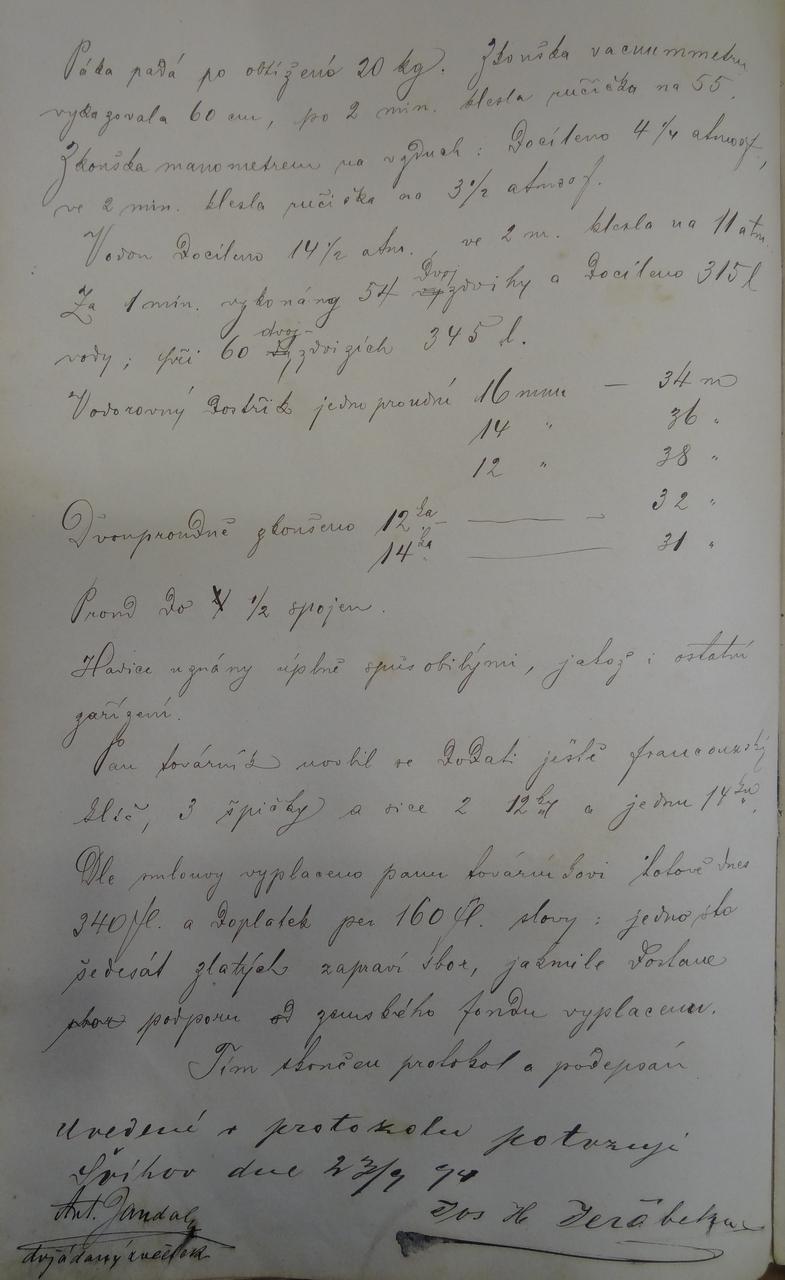 Páka padá po obtížení 20 kg. Zkouška vacuummetru
vykazovala 60 cm, po 2 min. klesla ručička na 55.
Zkouška manometrem na vzduch: Docíleno 4 1/4 atmosf.,
ve 2 min. klesla ručička na 3 1/2 atmosf.
Vodou Docíleno 14 1/2 atm., ve 2 m. klesla na 11 atm.
Za 1 min. vykonány 54 Dvojzdvihy a Docíleno 315 l
vody; při 60 dvoj-zdvizích 345 l.
Vodorovný Dostřik jednoproudní 16 mm — 34 m
14 " 36 "
12 " 38 "
Dvouproudně zkoušeno 12ka — 32 "
14ka — 31 "
Proud Do 1/2 spojen.
Hadice uznány úplně spůsobilými, jakož i ostatní
zařízení.
Pan továrník uvolil se DoDati ještě francouzský
klíč, 3 špičky a sice 2 12ky a jednu 14ku.
Dle smlouvy vyplaceno panu továrníkovi hotově dnes
340 fl. a Doplatek per 160 fl. slovy: jednosto
šedesát zlatých zapraví sbor, jakmile Dostane
sbor podporu od zemského fondu vyplacenu.
Tím skončen protokol a podepsán
Uvedené v protokolu potvrzuji
Švihov dne 23/9 94
Ant. Jandal
Jos H Jeřábek